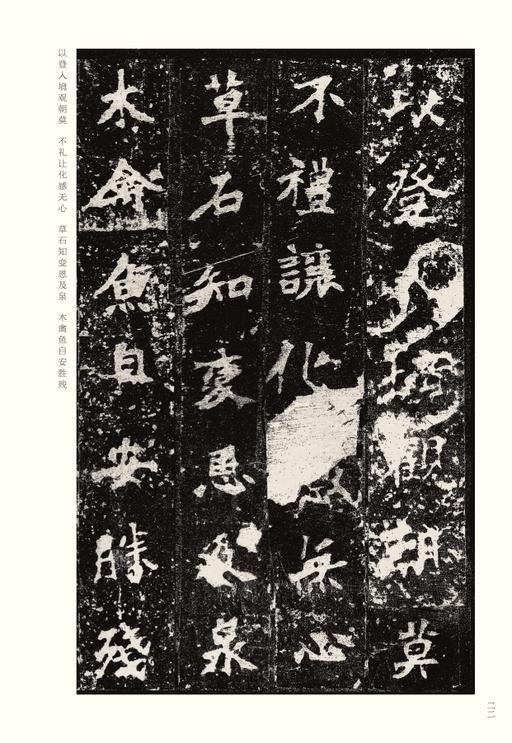 以登入墙观朝莫　不礼让化感无心　草石知变恩及泉　木禽鱼自安胜残
以登入牆觀朝莫
不禮讓化感無心
草石知變恩及泉
木禽魚自安勝殘
二二